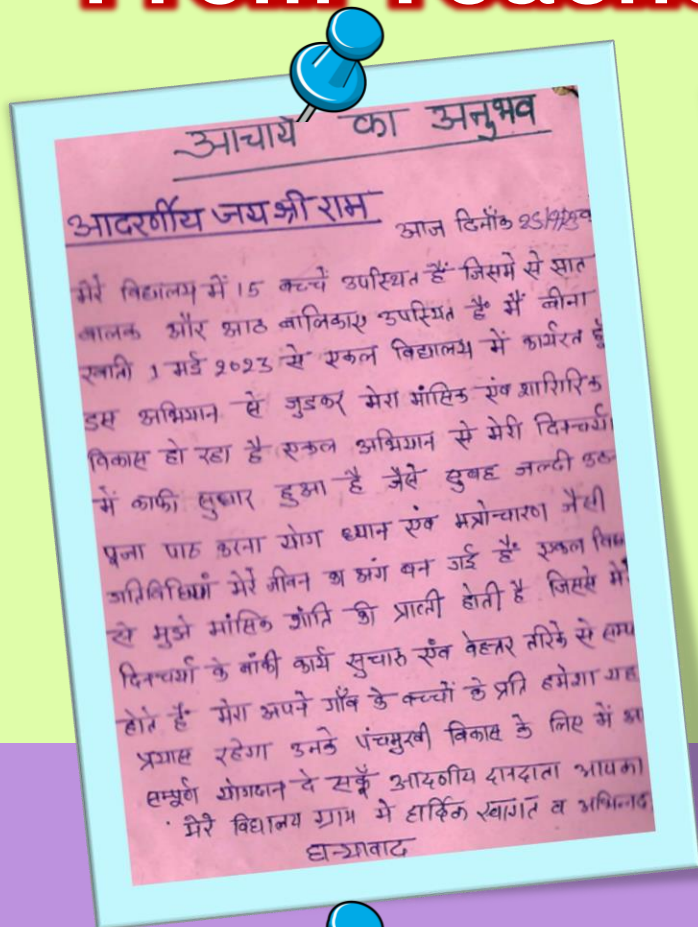 From Teache
आचार्य का अनुभव
आदरर्णीय जय श्री राम
आज दिनाँक
मेरे विद्यालय में 15 बच्चें उपस्थित हैं जिसमें से सात
बालक और आठ बालिकाए उपस्थित हैं मैं बीना
स्वाती 1 मई 2023 से एकल विद्यालय में कार्यरत हूँ
इस अभियान से जुडकर मेरा मांसिक एंव शारिरिक
विकास हो रहा है एकल अभियान से मेरी दिनचर्या
में काफी सुधार हुआ है जैसे सुबह जल्दी उठ
पूजा पाठ करना योग ध्यान एंव मत्रोच्चारण जैसी
गतिविधियां मेरे जीवन का अंग बन गई हैं एकल
से मुझे मांसिक शांति की प्राप्ती होती है जिससे मे
दिनचर्या के बांकी कार्य सुचारु एंव बेहतर तरिके से सम्प
होते हैं मेरा अपने गाँव के बच्चों के प्रति हमेशा यह
प्रयास रहेगा उनके पंचमुखी विकास के लिए में
सम्पूर्ण योगदान दे सकूँ आदर्णीय दानदाता आपका
मेरे विद्यालय ग्राम मे हार्दिक स्वागत व अभिनंद
धन्यावाद